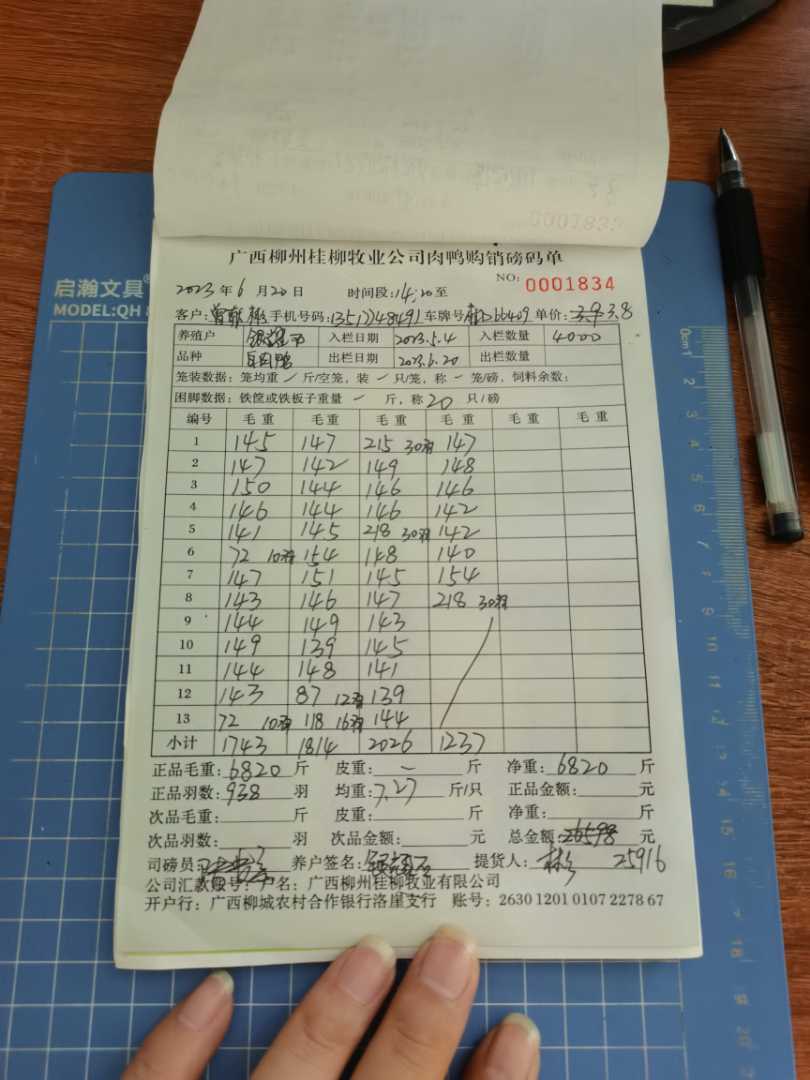 0001833
启瀚文具
MODEL:QH
广西柳州桂柳牧业公司肉鸭购销磅码单
NO: 0001834
2023 年 6 月 20 日 时间段: 14:20 至
客户: 手机号码: 13517248491 车牌号 单价: 3.9 3.8
养殖户 入栏日期 2023.5.4 入栏数量 4000
品种 出栏日期 2023.6.20 出栏数量
笼装数据: 笼均重 斤/空笼, 装 只/笼, 称 笼/磅, 饲料余数:
困脚数据: 铁筐或铁板子重量 斤, 称 20 只/磅
编号 毛重 毛重 毛重 毛重 毛重 毛重
1 145 147 215 30羽 147
2 147 142 149 148
3 150 144 146 146
4 146 144 146 142
5 141 145 218 30羽 142
6 72 10羽 154 148 140
7 147 151 145 154
8 143 146 147 218 30羽
9 144 149 143
10 149 139 145
11 144 148 141
12 143 87 12羽 139
13 72 10羽 118 16羽 144
小计 1743 1814 2026 1237
正品毛重: 6820 斤 皮重: 斤 净重: 6820 斤
正品羽数: 938 羽 均重: 7.27 斤/只 正品金额: 元
次品毛重: 斤 皮重: 斤 净重: 斤
次品羽数: 羽 次品金额: 元 总金额: 26598 元
司磅员: 养户签名: 提货人: 25916
公司汇款账号: 户名: 广西柳州桂柳牧业有限公司
开户行: 广西柳城农村合作银行洛崖支行 账号: 2630 1201 0107 2278 67